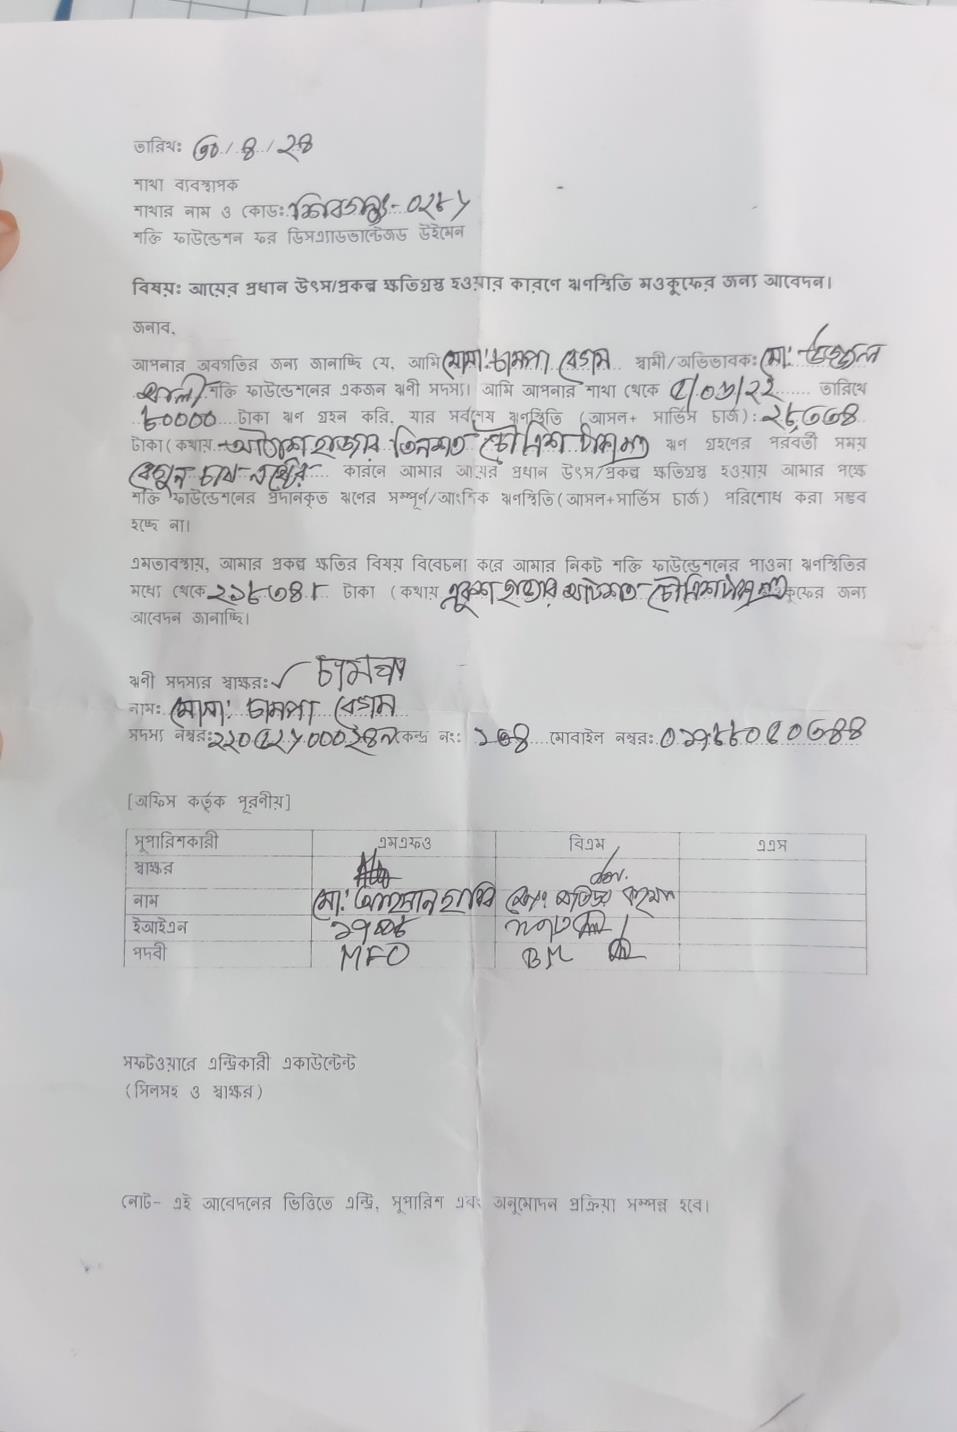 তারিখঃ ৩০/৪/২৪
শাখা ব্যবস্থাপক
শাখার নাম ও কোডঃ শিবগঞ্জ-০২৮৮
শক্তি ফাউন্ডেশন ফর ডিসএ্যাডভান্টেজড উইমেন
বিষয়ঃ আয়ের প্রধান উৎস/প্রকল্প ক্ষতিগ্রস্ত হওয়ার কারণে ঋণস্থিতি মওকুফের জন্য আবেদন।
জনাব,
আপনার অবগতির জন্য জানাচ্ছি যে, আমি মোসা: চামপা বেগম স্বামী/অভিভাবক: মো:
আলী শক্তি ফাউন্ডেশনের একজন ঋনী সদস্য। আমি আপনার শাখা থেকে তারিখে
৮০০০০ টাকা ঋণ গ্রহন করি, যার সর্বশেষ ঋণস্থিতি (আসল+ সার্ভিস চার্জ): ২৮৩৩৪
টাকা(কথায় আঠাশ হাজার তিনশত চৌত্রিশ টাকা মাত্র ঋণ গ্রহণের পরবর্তী সময়
বেগুন চাষ কারনে আমার আয়ের প্রধান উৎস/প্রকল্প ক্ষতিগ্রস্ত হওয়ায় আমার পক্ষে
শক্তি ফাউন্ডেশনের প্রদানকৃত ঋণের সম্পূর্ণ/আংশিক ঋণস্থিতি(আসল+সার্ভিস চার্জ) পরিশোধ করা সম্ভব
হচ্ছে না।
এমতাবস্থায়, আমার প্রকল্প ক্ষতির বিষয় বিবেচনা করে আমার নিকট শক্তি ফাউন্ডেশনের পাওনা ঋণস্থিতির
মধ্যে থেকে ২১৮৩৪ টাকা (কথায় একুশ হাজার আটশত চৌত্রিশ টাকা মাত্র মওকুফের জন্য
আবেদন জানাচ্ছি।
ঋনী সদস্যর স্বাক্ষরঃ চামপা
নামঃ মোসা: চামপা বেগম
সদস্য নম্বরঃ কেন্দ্র নং: মোবাইল নম্বরঃ
[অফিস কর্তৃক পূরণীয়]
সুপারিশকারী এমএফও বিএম এএস
স্বাক্ষর
নাম মো: আহসান হাবিব
ইআইএন
পদবী MFO BM
সফটওয়ারে এন্ট্রিকারী একাউন্টেন্ট
(সিলসহ ও স্বাক্ষর)
নোট- এই আবেদনের ভিত্তিতে এন্ট্রি, সুপারিশ এবং অনুমোদন প্রক্রিয়া সম্পন্ন হবে।